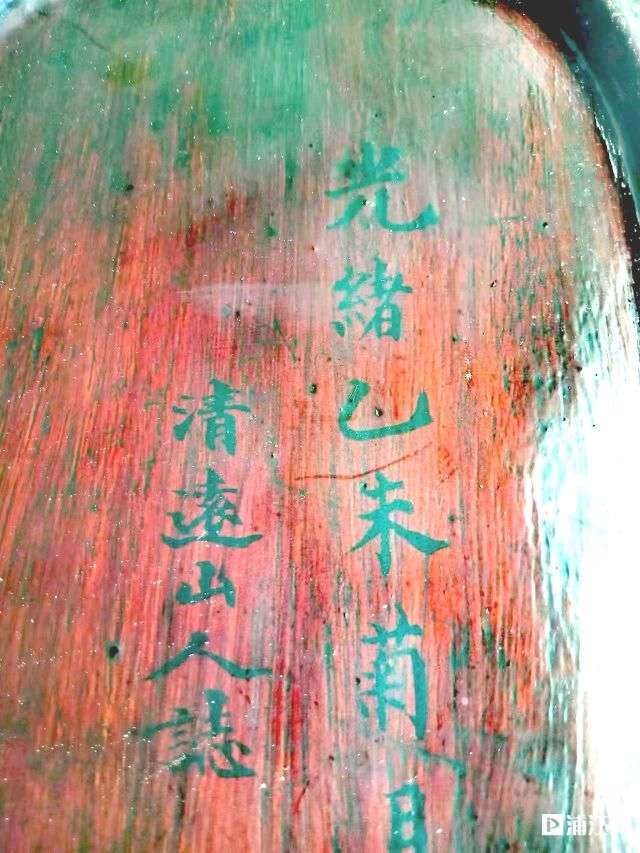 光緒乙未菊月
清遠山人誌
浦